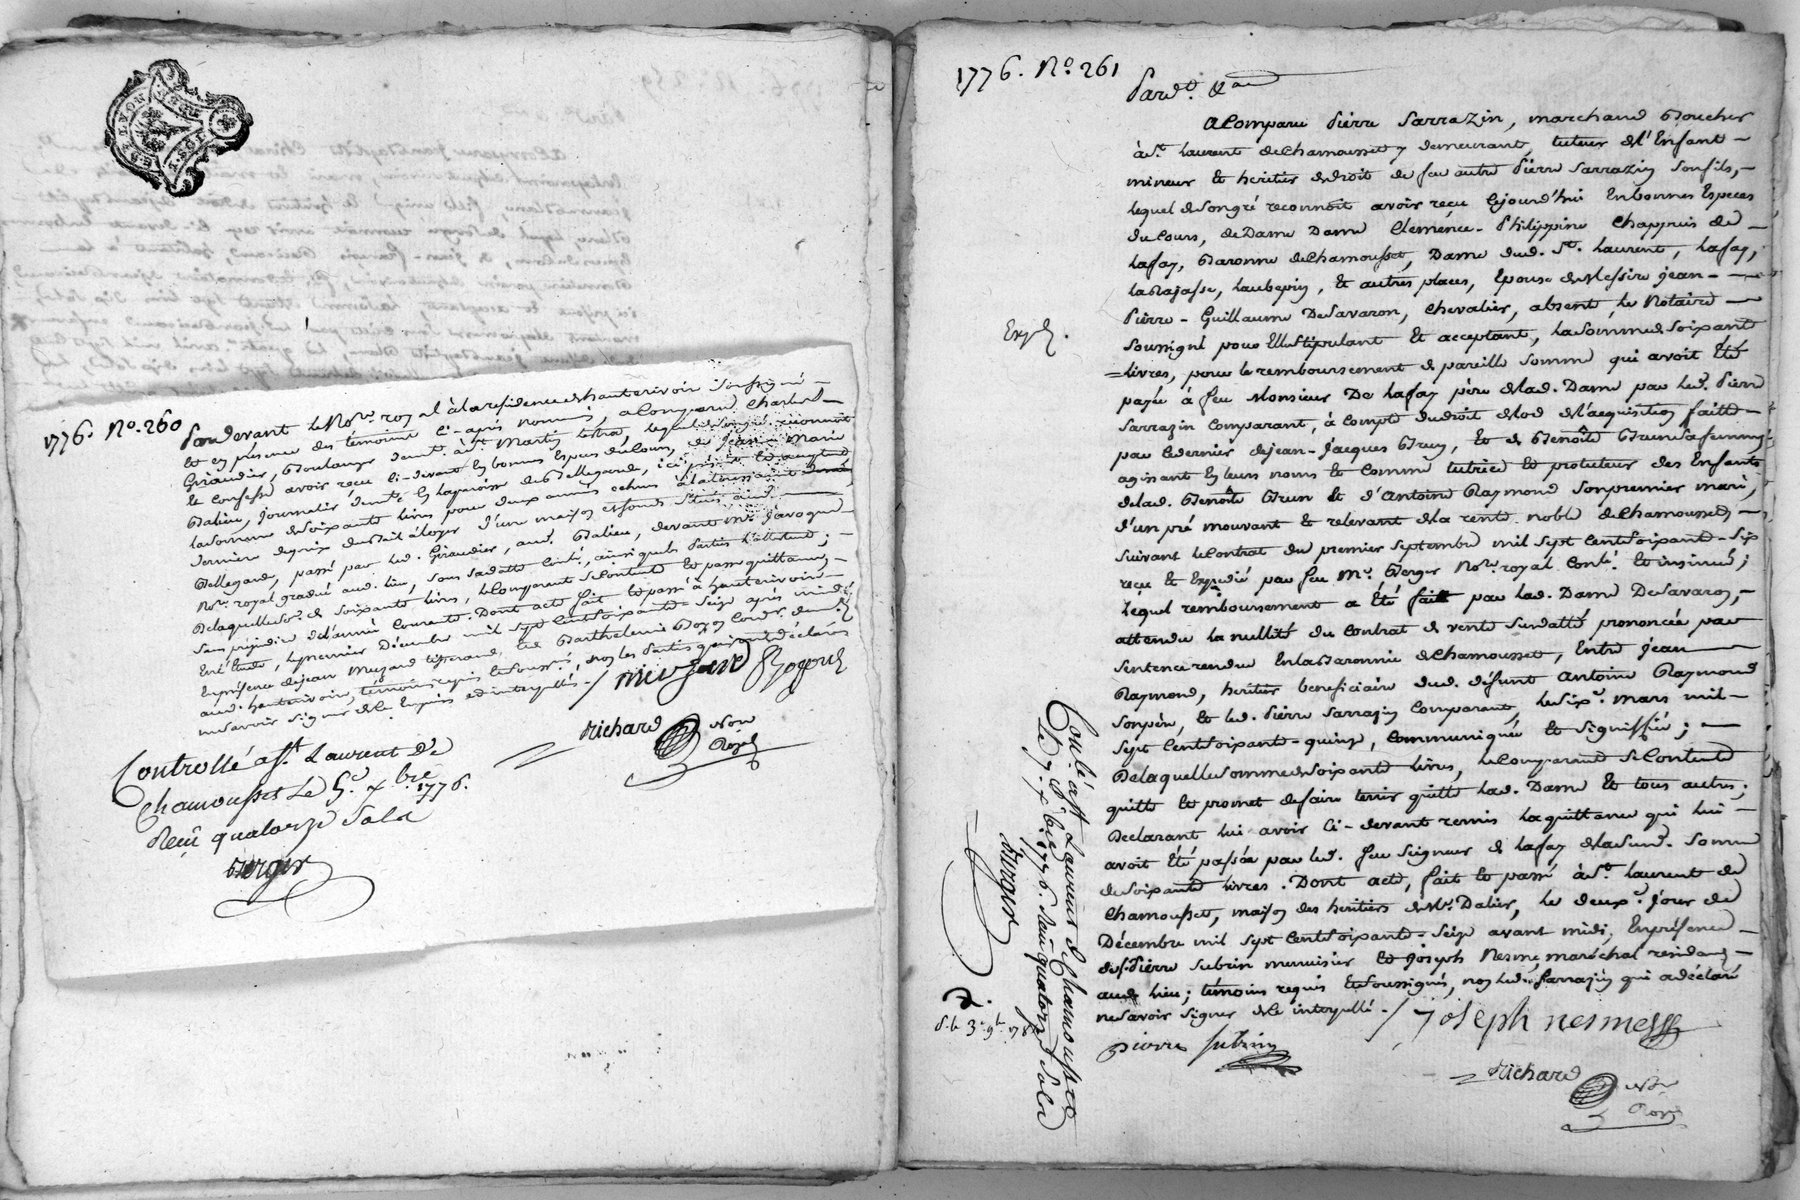 1776. No. 260
Pardevant le Nore. royal à la residence de hauterivoir soussigné
et en présence des témoins ci-après nommés, a comparu Charles
Giraudier, Boulanger demt. à St. Martin Lestra, lequel de son gré reconnoit
et confesse avoir reçu ci-devant en bonnes Especes du Cours, de Jean-Marie
Balieu, Journalier demt. en la paroisse de Bellegarde, ici présent et acceptant
la somme de soixante livres pour deux années echues à la toussaint
derniere du prix du Bail à loyer d'une maison et fonds situés aud.
Bellegarde, passé par led. Giraudier, aud. Balieu, devant Me. Javogue
Nore. royal gradué aud. lieu, sous sa datte Conlé, ainsi que les Parties l'attestent;
De laquelle so. de soixante livres, le Comparant se Contente et passe quittance,
sans préjudice de l'année Courante. Dont acte fait et passé à hauterivoir
En l'Etude, le premier Décembre mil sept cent soixante-seize après midi
En présence de jean Muzard tisserand, et Barthelemi Bozon Cord. demt.
aud. hauterivoir, témoins requis et soussignés, non les Parties qui ont déclaré
ne savoir signer de ce Enquis et interpellés./.
richard Nore
Roy.
Controllé a St. Laurent De
Chamousset Le 5e. xbre 1776.
Reçu quatorze Sols
Berger
1776. No. 261
Pardt. &a
A Comparu Pierre Sarrazin, marchand Boucher
à St. Laurent de Chamousset y demeurant, tuteur de l'Enfant
mineur et heritier de droit de feu autre Pierre Sarrazin son fils,
lequel de son gré reconnoit avoir reçu cejourd'hui En bonnes Especes
du Cours, de Dame Dame Clemence-Philippine Chappuis de
Lafay, Baronne de Chamousset, Dame dud. St. Laurent, Lafay,
la Rajasse, Laubepin, et autres places, Epouse de Messire jean-
Pierre-Guillaume De Savaron, Chevalier, absent, le Notaire
soussigné pour Elle stipulant et acceptant, la somme de soixante
livres, pour le remboursement de pareille somme qui avoit été
payée à feu Monsieur De Lafay père de lad. Dame par led. Pierre
Sarrazin Comparant, à compte du droit de lod de l'acquisition faite
par ce dernier de jean-Jacques Brun, et de Benoîte Brun sa femme,
agissant en leurs noms et comme tutrice et protuteur des Enfants
de lad. Benoîte Brun et d'Antoine Raymond son premier mari,
d'un pré mouvant et relevant de la rente noble de Chamousset,
suivant le Contrat du premier Septembre mil sept cent soixante-six
reçu et Expedié par feu Me. Berger Nore. royal Conlé. et insinué;
lequel remboursement a été fait par lad. Dame De Savaron,
attendu la nullité du Contrat de vente susdatté prononcée par
sentence rendue En la Baronnie de Chamousset, Entre jean
Raymond, heritier beneficiaire dud. défunt Antoine Raymond
son père, et led. Pierre Sarrazin Comparant, le six. mars mil
sept cent soixante-quinze, communiquée et signiffiée;
De laquelle somme de soixante livres, le Comparant se Contente
quitte et promet de faire tenir quitte lad. Dame et tous autres;
Declarant lui avoir ci-devant remis la quittance qui lui
avoit été passée par led. feu Seigneur de Lafay de la sud. somme
de soixante livres. Dont acte, fait et passé à St. Laurent de
Chamousset, maison des heritiers de Mr. Dalier, le deuxe. jour de
Décembre mil sept cent soixante-seize avant midi, En présence
de Sr. Pierre Subrin menuisier et Joseph Nesme maréchal residants
aud. lieu; temoins requis et soussignés, non led. Sarrazin qui a déclaré
ne savoir signer de ce interpellé./.
joseph nesme
pierre subrin
richard Nore
Roy.
Expdé.
Conlé a St. Laurent de Chamousset
Le 7e. xbre 1776. Reçu quatorze Sols
Berger